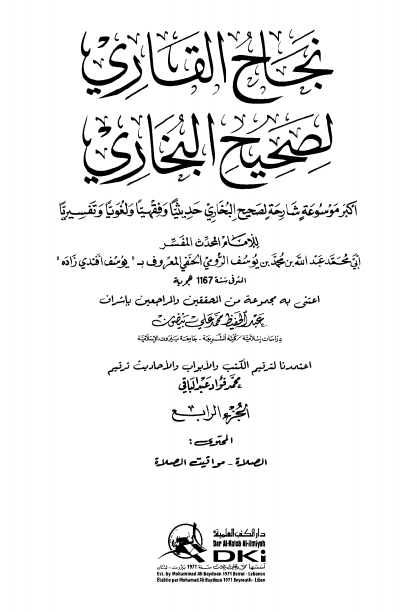 نجاح القاري
لصحيح البخاري
أكبر موسوعة شارحة لصحيح البخاري حديثيًّا وفقهيًّا ولغويًّا وتفسيريًّا
للإمام المحدث المفسر
أبي محمد عبد الله بن محمد بن يوسف الرومي الحنفي المعروف بـ "يوسف أفندي زاده"
المتوفى سنة 1167 هجرية
اعتنى به مجموعة من المحققين والمراجعين بإشراف
عبد الحفيظ محمد علي بيضون
دراسات إسلامية - كلية الشريعة - جامعة بيروت الإسلامية
اعتمدنا لترقيم الكتب والأبواب والأحاديث ترقيم
محمد فؤاد عبد الباقي
الجزء الرابع
المحتوى:
الصلاة - مواقيت الصلاة
دار الكتب العلمية
Dar Al-Kotob Al-ilmiyah
DKi
أسسها محمد علي بيضون سنة 1971 بيروت - لبنان
Est. by Mohammad Ali Baydoun 1971 Beirut - Lebanon
Établie par Mohamad Ali Baydoun 1971 Beyrouth - Liban